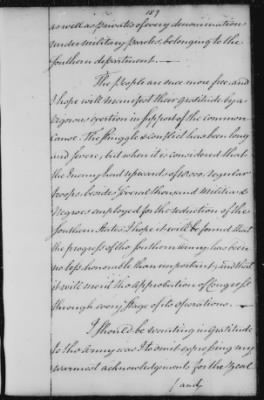 189
as well as privates of every denomination
under military parole belonging to the
southern department. —
The People are once more free, and
I hope will manifest their gratitude by a
vigorous exertion in support of the common
Cause. The struggle & conflict has been long
and severe, but when it is considered that
the Enemy had upwards of 18000 regular
troops, besides several thousand Militia &
Negroes employed for the reduction of the
Southern States, I hope it will be found that
the progress of the southern Army has been
no less honorable than important, and that
it will merit the approbation of Congress
through every stage of its operations. —
I should be wanting in gratitude
to the Army was I to omit expressing my
warmest acknowledgements for the Zeal
(and